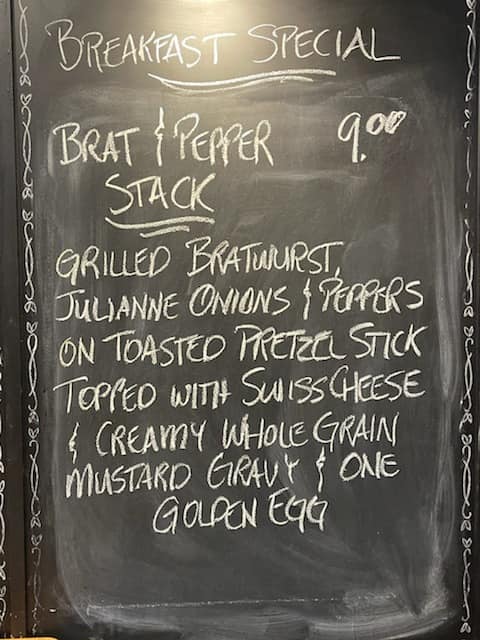 BREAKFAST SPECIAL
BRAT & PEPPER 9.00
STACK
GRILLED BRATWURST,
JULIANNE ONIONS & PEPPERS
ON TOASTED PRETZEL STICK
TOPPED WITH SWISS CHEESE
& CREAMY WHOLE GRAIN
MUSTARD GRAVY & ONE
GOLDEN EGG